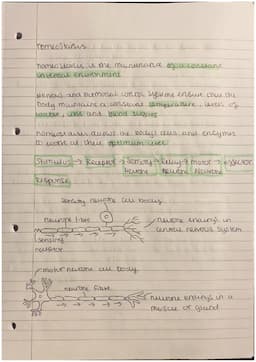 Homeostasis
Homeostasis is the maintenance of a constant
internal environment
Nervous and hormonal control systems ensure that the
body maintains a constant temperature, levels of
water, and blood sugars
Homeostasis allows the body cells and enzymes
to work at their optimum level
Stimulus → Receptor → Sensory Neurone → Relay Neurone → Motor Neurone → effector
Response
Sensory neurone cell body
neurone fibre
neurone endings in
central nervous system
Sensing
receptor
motor neurone cell body
neurone fibre
neurone endings in a
muscle or gland